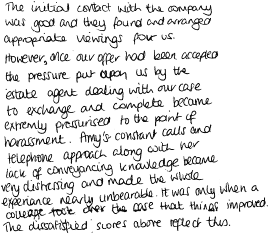 The initial contact with the company
was good and they found and arranged
appropriate viewings four us.
However, once our offer had been accepted
the pressure put upon us by the
estate agent dealing with our case
to exchange and complete became
extremly pressurised to the point of
harassment. Amy's constant calls and
telephone approach along with her
lack of conveyancing knowledge became
very distressing and made the whole
experience nearly unbearable. It was only when a
colleage took over the case that things improved.
The dissatisfied scores above reflect this.